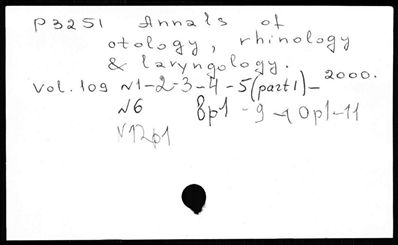 P3251 Annals of
otology, rhinology
& laryngology.
Vol. 109 N1-2-3-4-5(part1)-2000.
N6 8p1-9-10p1-11
N12p1